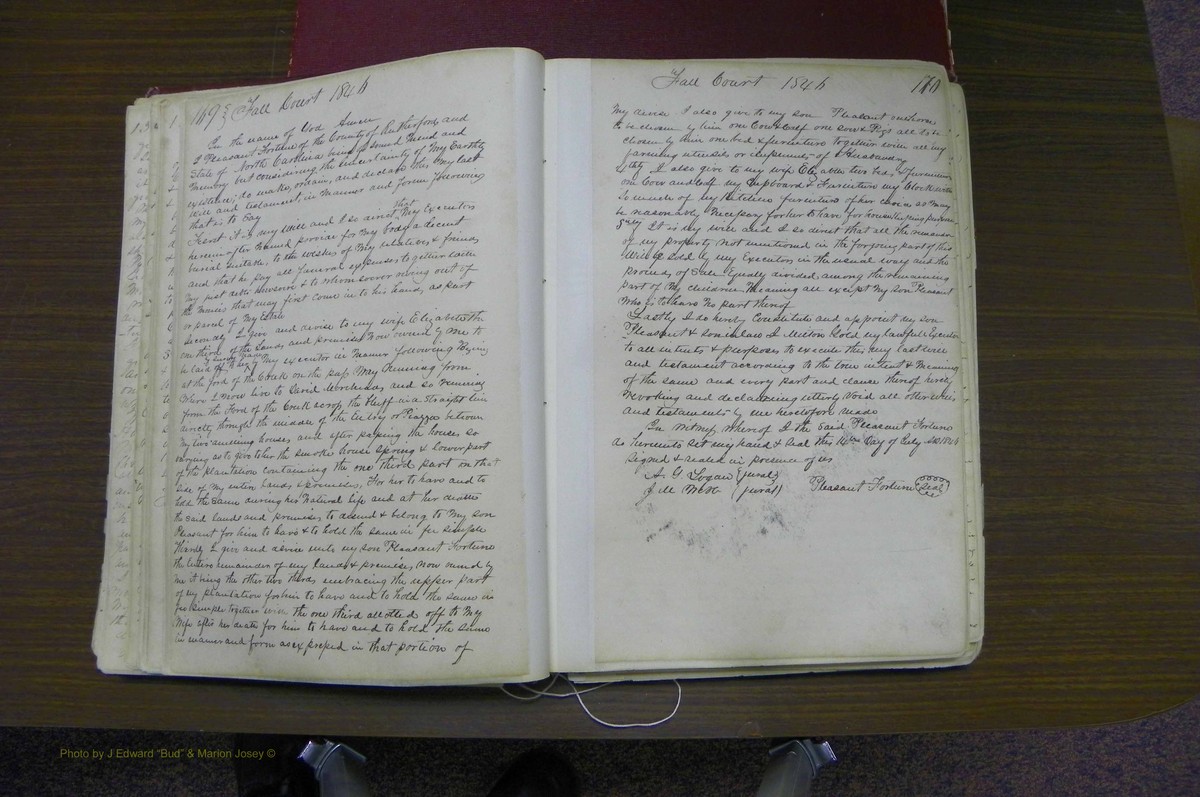 169 Fall Court 1846
In the name of God Amen
I Pleasant Fortune of the County of Rutherford and
State of North Carolina being of Sound Mind and
Memory but considering the uncertainty of My Earthly
existence; do make, ordain, and declare this My last
Will and testament, in Manner and form following
that is to Say
First it is my will and I so direct that My Executors
herein after named provide for My body a decent
burial Suitable to the wishes of My relatives & friends
and that he pay all funeral expenses together with
My just debts howsoever & to whomsoever owing out of
the Monies that may first come in to his hands as part
or parcel of My Estate
Secondly I give and devise to my wife Elizabeth
one third of the lands and premises now owned by me to
be laid off to her by My executor in Manner following Begining
at the ford of the Creek on the path Way running from
where I now live to David and so running
from the Ford of the Creek across the Bluff in a Straight line
directly through the middle of the Entry or Piazza between
My two dwelling houses and after passing the houses so
varying as to give to her the Smoke house Spring & lower part
of the plantation containing the one third part on that
side of My entire lands & premises. For her to have and to
hold the Same during her Natural life and at her death
the said lands and premises to desend & belong to My son
Pleasant for him to have & to hold the same in fee Simple
Thirdly I give and devise unto my son Pleasant Fortune
the entire remainder of my lands & premises now owned by
me it being the other two thirds embracing the upper part
of my plantation for him to have and to hold the same in
fee Simple together with the one third allotted off to My
Wife after her death for him to have and to hold the Same
in manner and form as expressed in that portion of
Fall Court 1846 170
My devise I also give to my son Pleasant one horse
to be chosen by him one Cow & Calf one sow & Pigs all to be
chosen by him one bed & furniture together with all my
farming utensils or implements of Husbandry
4thly I also give to my wife Elizabeth two beds & furniture
one Cow and Calf my Cupboard & Furniture my Clock with
So much of my Kitchen furniture of her choice as may
be reasonably Necessary for her to have for housekeeping purposes
5thly It is my will and I so direct that all the remainder
of my property not mentioned in the forgoing part of this
Will be Sold by my Executors in the usual way and the
proceeds of Sale Equally divided among the remaining
part of My children Meaning all except My son Pleasant
Who is to have No part thereof
Lastly I do hereby Constitute and appoint my son
Pleasant & son in law J. Milton my lawfull Executors
to all intents & purposes to execute this my last will
and testament according to the true intent & Meaning
of the same and every part and clause thereof hereby
Revoking and declaring utterly Void all other wills
and testaments by me heretofore made
In Witness whereof I the Said Pleasant Fortune
do hereunto Set my hand & Seal this 14th Day of July AD 1846
Signed & sealed in presence of us
A. G. Logan (Jurat)
J. M. Webb (Jurat) Pleasant Fortune Seal
Photo by J Edward "Bud" & Marion Josey ©